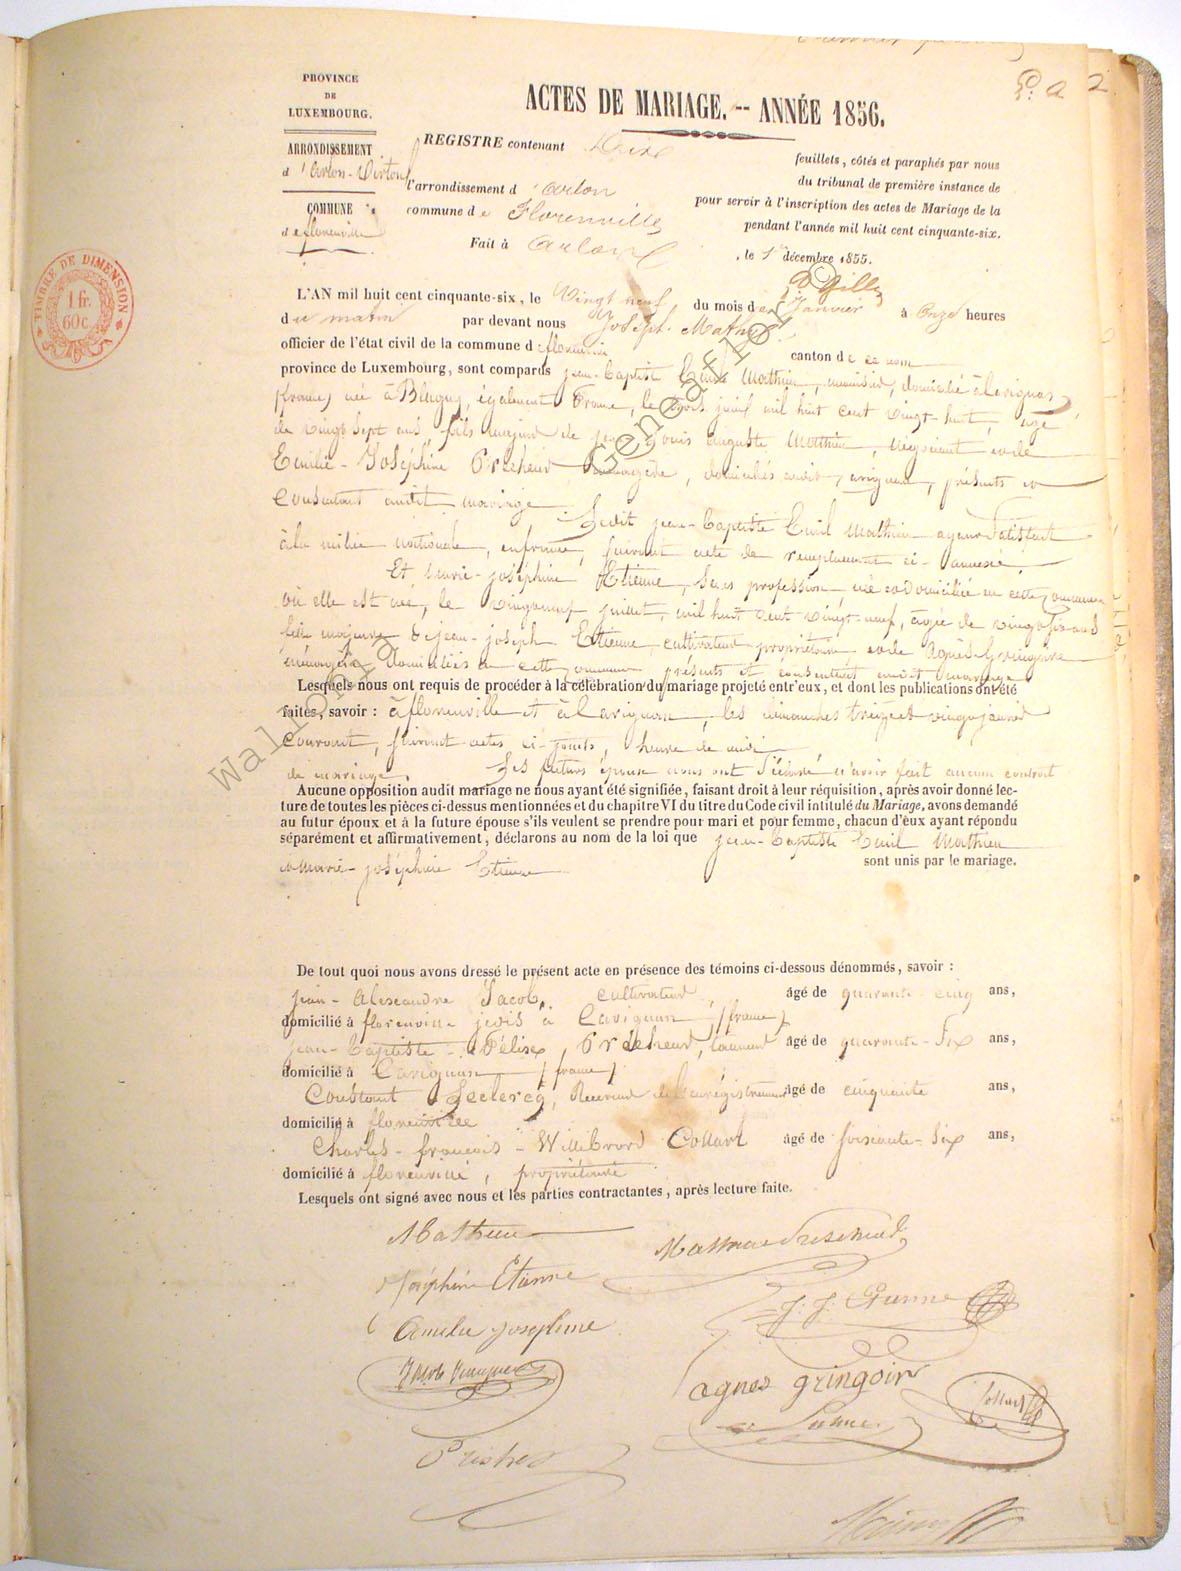 PROVINCE
DE
LUXEMBOURG.
ARRONDISSEMENT
d'Arlon-Virton
COMMUNE
de florenville
TIMBRE DE DIMENSION
1 fr.
60 c.
ACTES DE MARIAGE. -- ANNÉE 1856.
REGISTRE contenant feuillets, côtés et paraphés par nous
du tribunal de première instance de
l'arrondissement d'arlon pour servir à l'inscription des actes de Mariage de la
commune de Florenville pendant l'année mil huit cent cinquante-six.
Fait à arlon, le 1er décembre 1855.
L'AN mil huit cent cinquante-six, le vingt neuf du mois de janvier à onze heures
du matin par devant nous Joseph Mathy
officier de l'état civil de la commune de florenville canton de ce nom
province de Luxembourg, sont comparus jean-Baptiste Emil Mathieu, domicilié à Carignan
(france) né à Blagny, également France, le trois juin mil huit cent vingt-huit, agé
de vingt sept ans, fils majeur de jean Louis auguste Mathieu, négociant, et de
Emilie-Joséphine Prescheur ménagère, domiciliés audit Carignan, présents et
Consentant audit mariage. Ledit jean-Baptiste Emil Mathieu ayant satisfait
à la milice nationale, en france, suivant acte de remplacement ci-annexé.
Et Marie-joséphine Etienne, sans profession, née et domiciliée en cette Commune
où elle est née, le vingt neuf juillet, mil huit cent vingt-neuf, agée de vingt six ans
fille majeure de jean-joseph Etienne, cultivateur propriétaire, et de Agnès Gringoire
ménagère domiciliés en cette Commune présents et consentant audit mariage
Lesquels nous ont requis de procéder à la célébration du mariage projeté entr'eux, et dont les publications ont été
faites, savoir : à florenville et à Carignan, les dimanches treize et vingt janvier
Courant, suivant actes ci-joints, heure de midi
Les futurs époux nous ont déclaré n'avoir fait aucun contrat
de mariage.
Aucune opposition audit mariage ne nous ayant été signifiée, faisant droit à leur réquisition, après avoir donné lec-
ture de toutes les pièces ci-dessus mentionnées et du chapitre VI du titre du Code civil intitulé du Mariage, avons demandé
au futur époux et à la future épouse s'ils veulent se prendre pour mari et pour femme, chacun d'eux ayant répondu
séparément et affirmativement, déclarons au nom de la loi que jean-Baptiste Emil Mathieu
et Marie-joséphine Etienne sont unis par le mariage.
De tout quoi nous avons dressé le présent acte en présence des témoins ci-dessous dénommés, savoir :
jean-Alexandre Jacob, cultivateur, âgé de quarante cinq ans,
domicilié à florenville jadis à Carignan (france)
jean-Baptiste-Félix Prescheur, âgé de quarante-six ans,
domicilié à Carignan (france)
Constant Leclercq, Receveur de l'enregistrement âgé de cinquante ans,
domicilié à florenville
Charles-francois-Willibrord Collart âgé de soixante-six ans,
domicilié à florenville, propriétaire
Lesquels ont signé avec nous et les parties contractantes, après lecture faite.
Mathieu
Mathieu Prescheur
Joséphine Etienne
J: J: Etienne
Amélie Josephine
agnes gringoir
Collart
Wallonie Geneaflor ©